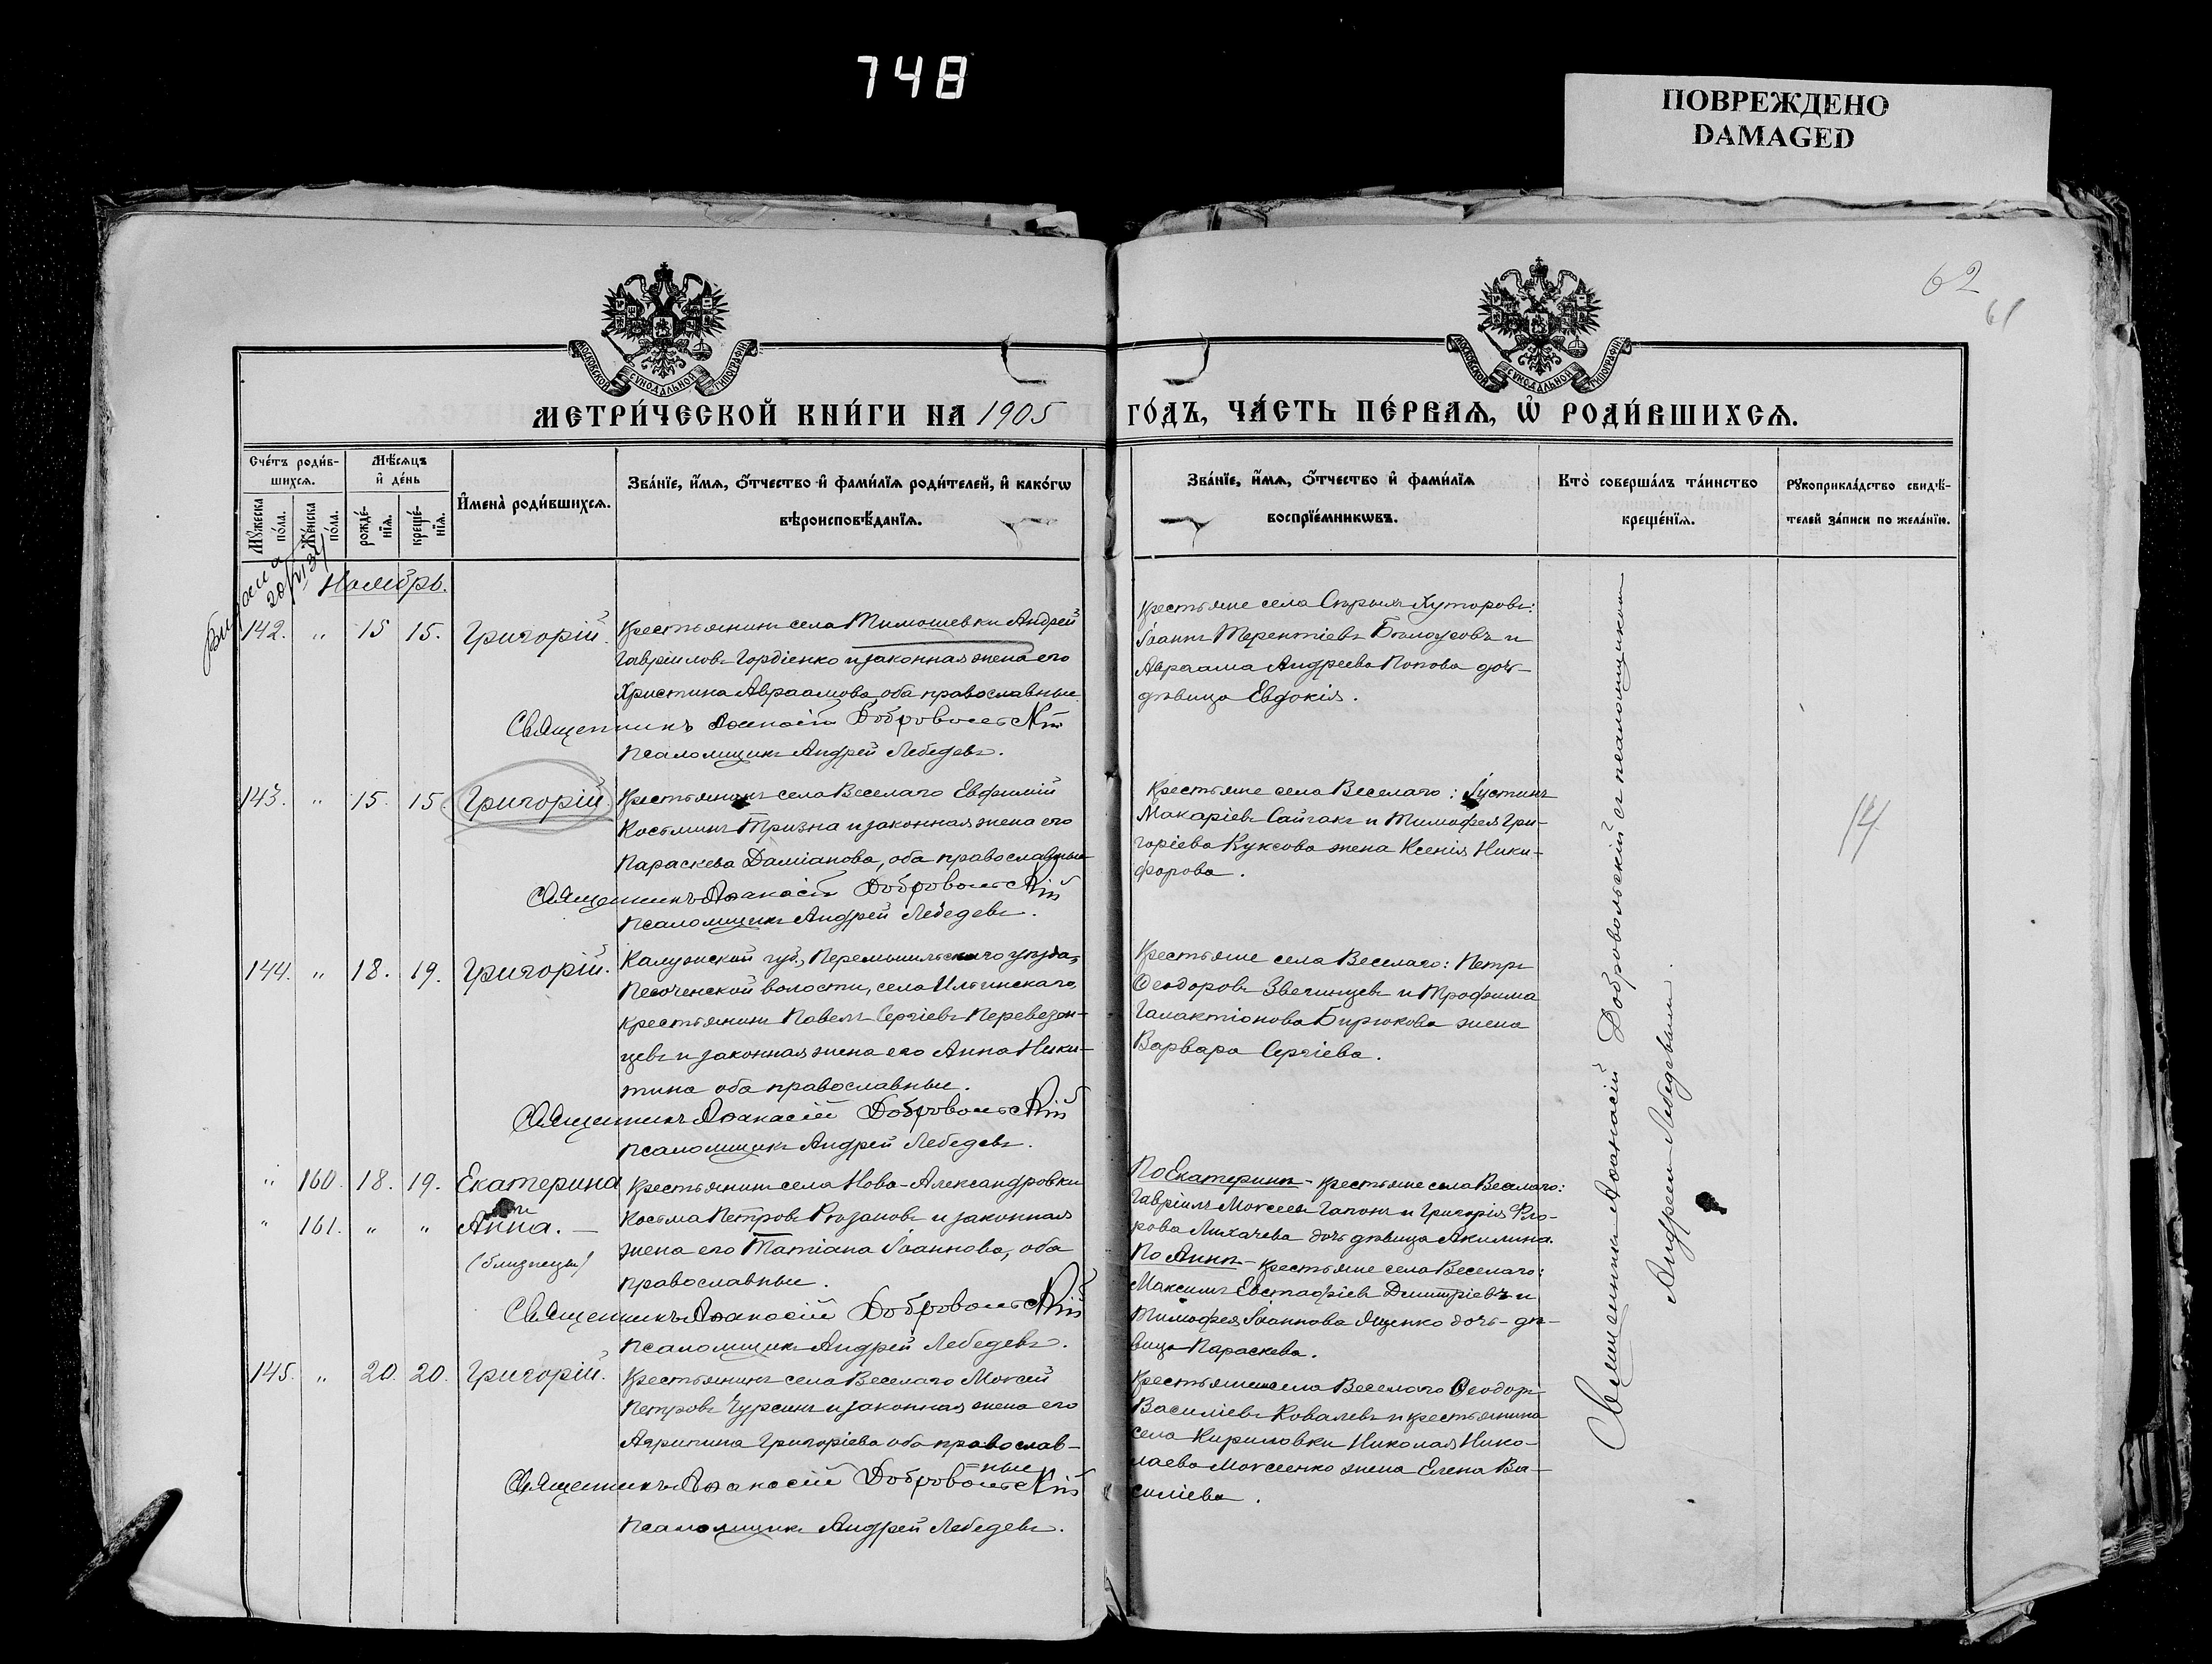 748
ПОВРЕЖДЕНО
DAMAGED
62
61
МОСКОВСКОЙ СУНОДАЛЬНОЙ ТИПОГРАФІИ
МОСКОВСКОЙ СУНОДАЛЬНОЙ ТИПОГРАФІИ
МЕТРИ́ЧЕСКОЙ КНИ́ГИ НА 1905 ГО́ДЪ, ЧА́СТЬ ПЕ́РВАѦ, Ѡ҆ РОДИ́ВШИХСѦ.
Сче́тъ роди́в-
шихсѧ.
Мѣ́сѧцъ
и҆ де́нь
Мꙋ́жеска по́ла.
Же́нска по́ла.
рожде́-
нїѧ.
креще́-
нїѧ.
И҆мена̀ роди́вшихсѧ.
Зва́нїе, и҆́мѧ, ѻ҆́тчество и҆ фами́лїѧ роди́телей, и҆ како́гѡ
вѣроисповѣ́данїѧ.
Зва́нїе, и҆́мѧ, ѻ҆́тчество и҆ фами́лїѧ
воспрїе́мникѡвъ.
Кто̀ соверша́лъ та́инство
креще́нїѧ.
Рꙋкоприкла́дство свидѣ́-
телей за́писи по жела́нїю.
Ноябрь.
142. " 15 15. Григорій.
Крестьянинъ села Тимошевки Андрей
Гавріиловъ Гордіенко и законная жена его
Христина Авраамова, оба православные
Священникъ Аѳанасій Добровольскій
Псаломщикъ Андрей Лебедевъ.
Крестьяне села Хуторовъ:
Іоаннъ Терентіевъ Бѣлоусовъ и
Авраама Андреева Попова дочь-
дѣвица Евдокія.
143. " 15. 15 Григорій.
Крестьянинъ села Веселаго Евфимій
Косьминъ Тризна и законная жена его
Параскева Даміанова, оба православные
Священникъ Аѳанасій Добровольскій
Псаломщикъ Андрей Лебедевъ.
Крестьяне села Веселаго: Іустинъ
Макаріевъ Сайгакъ и Тимофея Гри-
горіева Куксова жена Ксенія Ники-
форова.
14
144. " 18. 19. Григорій.
Калужской губ., Перемышльскаго уѣзда,
Песоченской волости, села Ильинскаго,
крестьянинъ Павелъ Сергіевъ Перевезен-
цевъ и законная жена его Анна Ники-
тина оба православные.
Священникъ Аѳанасій Добровольскій
Псаломщикъ Андрей Лебедевъ.
Крестьяне села Веселаго: Петръ
Ѳеодоровъ Звегинцевъ и Трофима
Галактіонова Бирюкова жена
Варвара Сергіева.
" 160. 18. 19. Екатерина
и
" 161. " " Анна. —
(близнецы)
Крестьянинъ села Ново-Александровки
Косьма Петровъ Рязановъ и законная
жена его Татіана Іоаннова, оба
православные.
Священникъ Аѳанасій Добровольскій
Псаломщикъ Андрей Лебедевъ.
По Екатеринѣ - крестьяне села Веселаго:
Гавріилъ Моисеевъ Гапонъ и Григорія Фло-
рова Лихачева дочь дѣвица Акилина.
По Аннѣ - крестьяне села Веселаго:
Максимъ Евстафіевъ Димитріевъ и
Тимофея Іоаннова Яценко дочь-дѣ-
вица Параскева.
145. " 20. 20. Григорій.
Крестьянинъ села Веселаго Моисей
Петровъ Чурсинъ и законная жена его
Агрипина Григоріева оба православ-
ные
Священникъ Аѳанасій Добровольскій
Псаломщикъ Андрей Лебедевъ.
села Веселаго Ѳеодоръ
Василіевъ Ковалевъ и крестьянина
села Кириловки Николая Нико-
лаева Моисеенко жена Елена Ва-
силіева.
Священникъ Аѳанасій Добровольскій съ псаломщикомъ
Андреемъ Лебедевымъ.